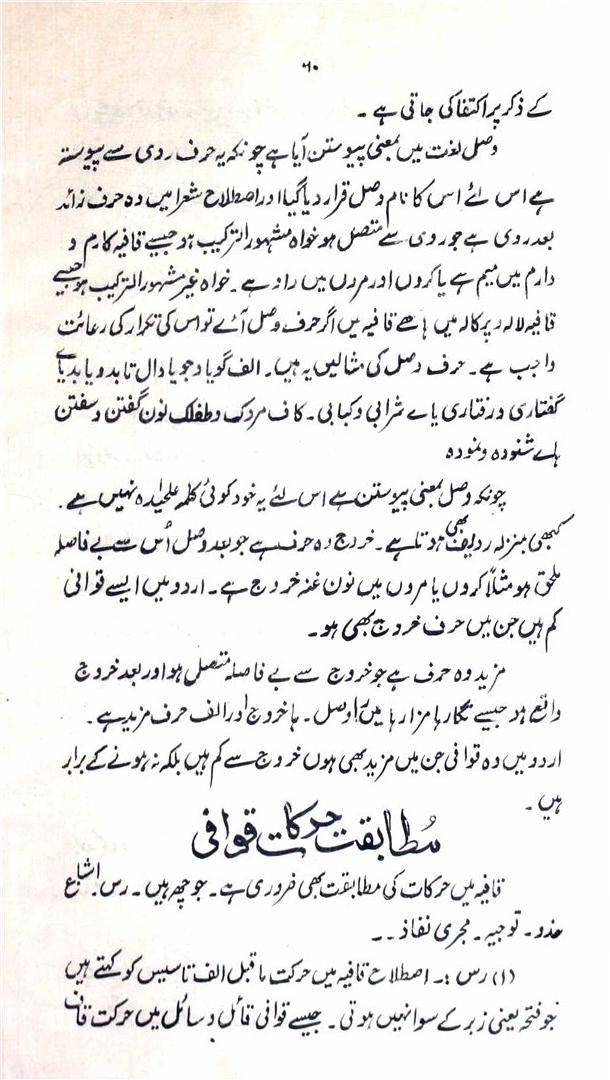 ۶۰
کے ذکر پر اکتفا کی جاتی ہے ۔
وصل لغت میں بمعنی پیوستن آیا ہے چونکہ یہ حرف روی سے پیوستہ
ہے اس لئے اس کا نام وصل قرار دیا گیا اور اصطلاح شعرا میں وہ حرف زائد
بعد روی ہے جو روی سے متصل ہو خواہ مشہور الترکیب ہو جیسے قافیہ کارم و
دارم میں میم ہے یا کروں اور مروں میں راو ہے ۔ خواہ غیر مشہور الترکیب ہو جیسے
قافیہ لالہ و پرکالہ میں ہا ہے قافیہ میں اگر حرف وصل آئے تو اس کی تکرار کی رعائت
واجب ہے ۔ حرف وصل کی مثالیں یہ ہیں ۔ الف گویا و جویا دال تابد و یابد یائے
گفتاری و رفتاری یاے شرابی و کبابی ۔ کاف مردک و طفلک نون گفتن و سفتن
ہاے شنودہ و نمودہ
چونکہ وصل بمعنی پیوستن ہے اس لئے یہ خود کوئی کلمہ علٰحیدہ نہیں ہے ۔
کبھی بمنزلہ ردیف بھی ہوتا ہے ۔ خروج وہ حرف ہے جو بعد وصل اُس سے بے فاصلہ
ملحق ہو مثلاً کروں یا مروں میں نون غنہ خروج ہے ۔ اردو میں ایسے قوافی
کم ہیں جن میں حرف خروج بھی ہو ۔
مزید وہ حرف ہے جو خروج سے بے فاصلہ متصل ہو اور بعد خروج
واقع ہو جیسے نگارہا مزارہا میں را وصل ۔ ہا خروج اور الف حرف مزید ہے ۔
اردو میں وہ قوافی جن میں مزید بھی ہوں خروج سے کم ہیں بلکہ نہ ہونے کے برابر
ہیں ۔
مُطابقت حرکات قوافی
قافیہ میں حرکات کی مطابقت بھی ضروری ہے ۔ جو چھ ہیں ۔ رس ۔ اشباع
حذو ۔ توجیہ ۔ مجری نفاذ ۔ ۔
(۱) رس :۔ اصطلاح قافیہ میں حرکت ما قبل الف تاسیس کو کہتے ہیں
جو فتحہ یعنی زبر کے سوا نہیں ہوتی ۔ جیسے قوافی قائل و سائل میں حرکت قاف